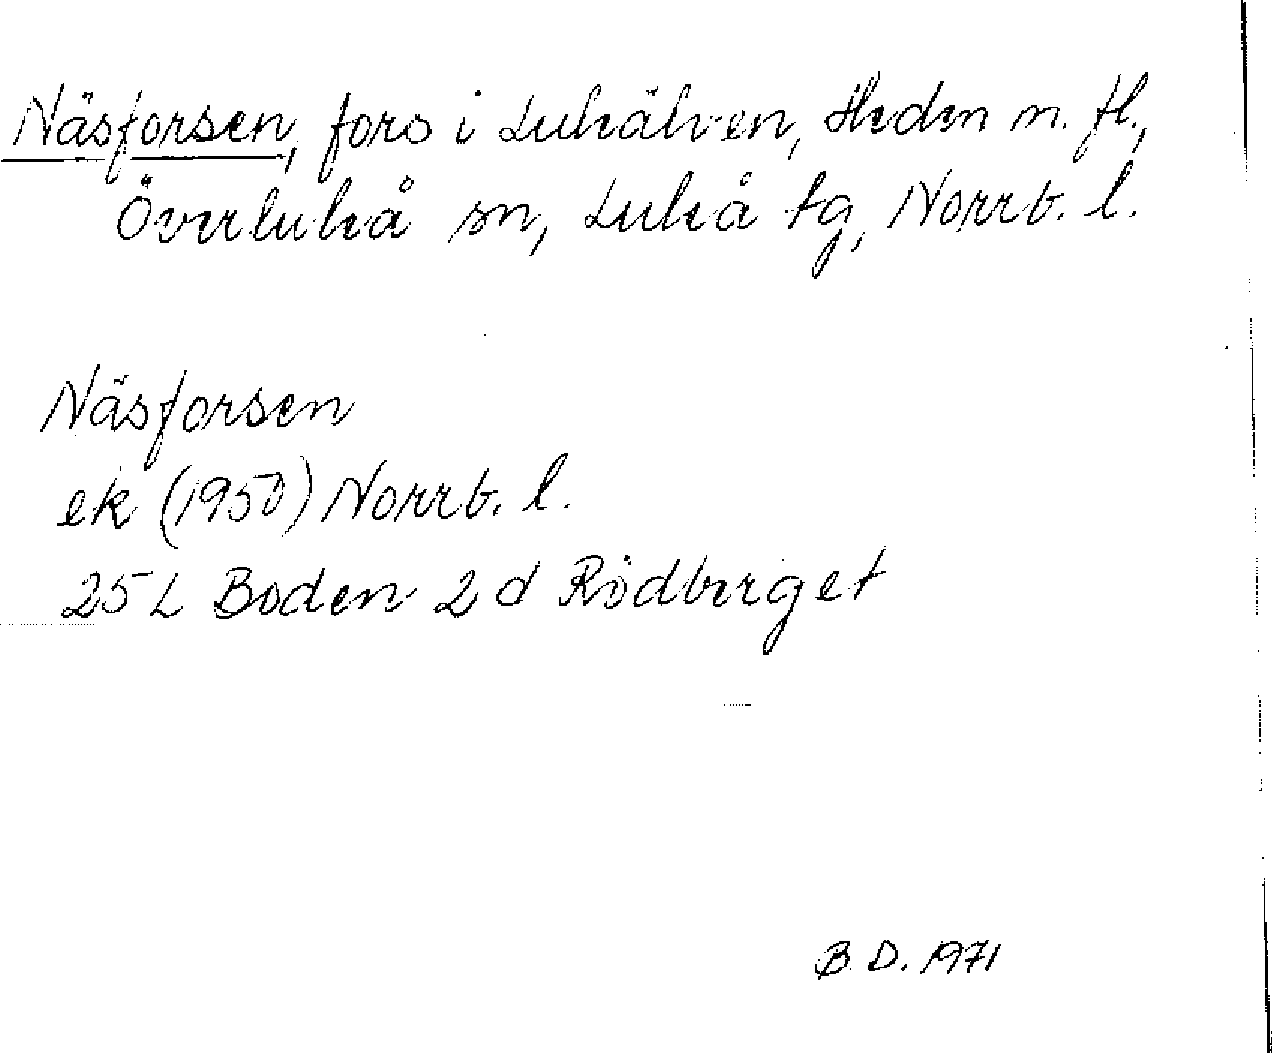 Näsforsen, fors i Luleälven, Heden m. fl.,
Överluleå sn, Luleå tg, Norrb. l.
Näsforsen
ek (1950) Norrb. l.
25 L Boden 2 d Rödberget
B. D. 1971